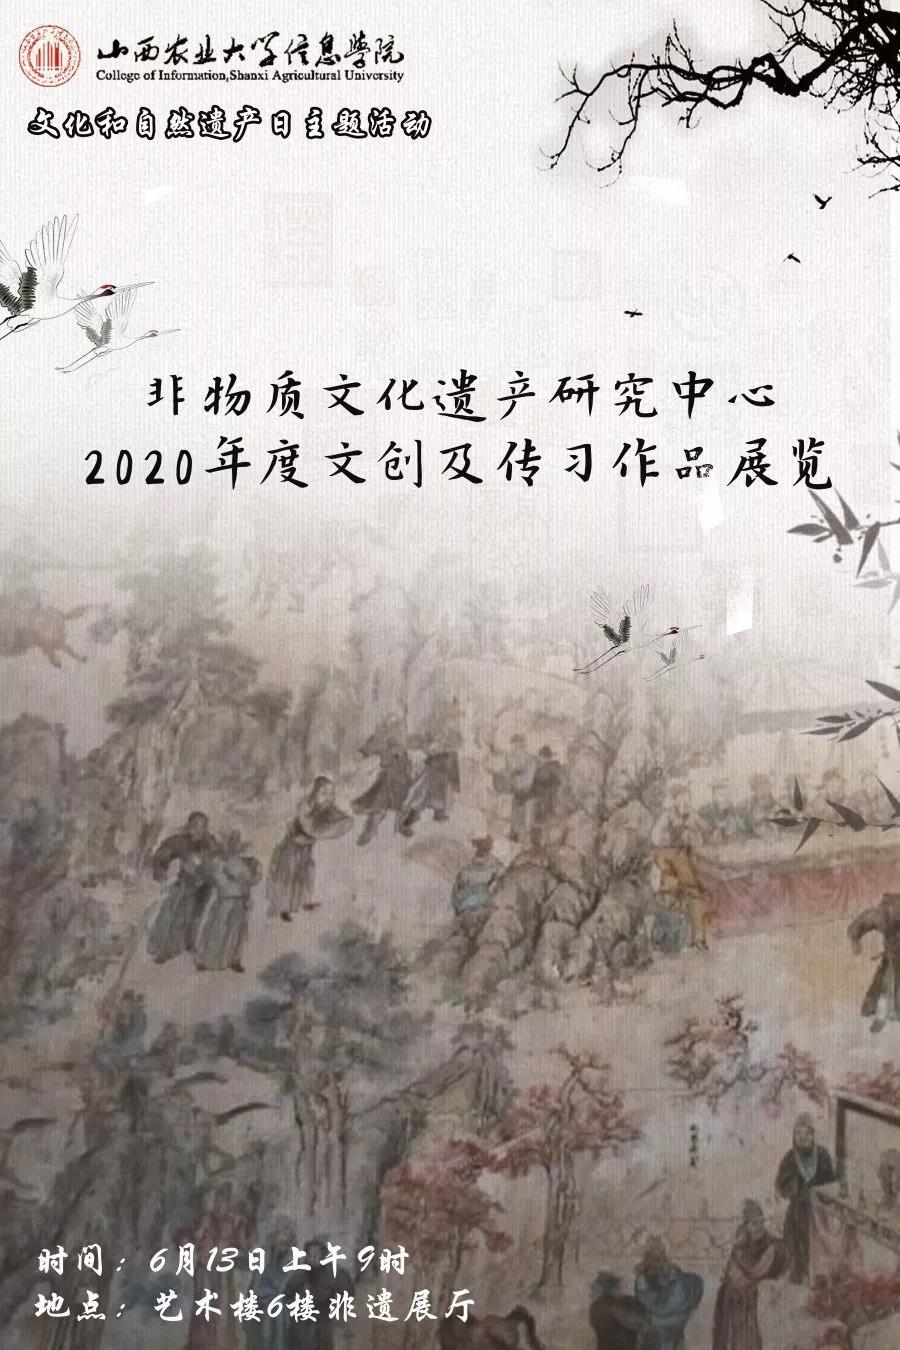 山西农业大学信息学院
College of Information,Shanxi Agricultural University
文化和自然遗产日主题活动
非物质文化遗产研究中心
2020年度文创及传习作品展览
时间：6月13日上午9时
地点：艺术楼6楼非遗展厅